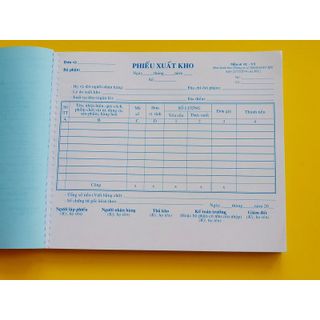 Đơn vị:
Bộ phận:
PHIẾU XUẤT KHO
Ngày tháng năm
Số:
Mẫu số 02 - VT
- Họ và tên người nhận hàng: Địa chỉ (bộ phận):
- Lý do xuất kho:
- Xuất tại kho (ngăn lô): Địa điểm:
Số TT
Tên, nhãn hiệu, quy cách, phẩm chất vật tư, dụng cụ sản phẩm, hàng hoá
Mã số
Đơn vị tính
SỐ LƯỢNG
Yêu cầu
Thực xuất
Đơn giá
Thành tiền
A B C D 1 2 3 4
Cộng x x x
- Tổng số tiền (Viết bằng chữ):
- Số chứng từ gốc kèm theo:
Ngày tháng năm 20
Người lập phiếu Người nhận hàng Thủ kho Kế toán trưởng Giám đốc
(Ký, họ tên) (Ký, họ tên) (Ký, họ tên) (Hoặc bộ phận có nhu cầu nhập) (Ký, họ tên)
(Ký, họ tên)